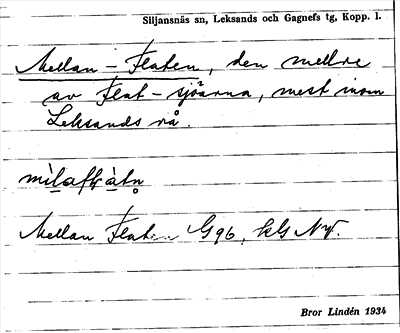 Siljansnäs sn, Leksands och Gagnefs tg, Kopp. l.
Mellan-Flaten, den mellre
av Flat-sjöarna, mest inom
Leksands rå.
Mellan Flaten G96, kls NV.
Bror Lindén 1934